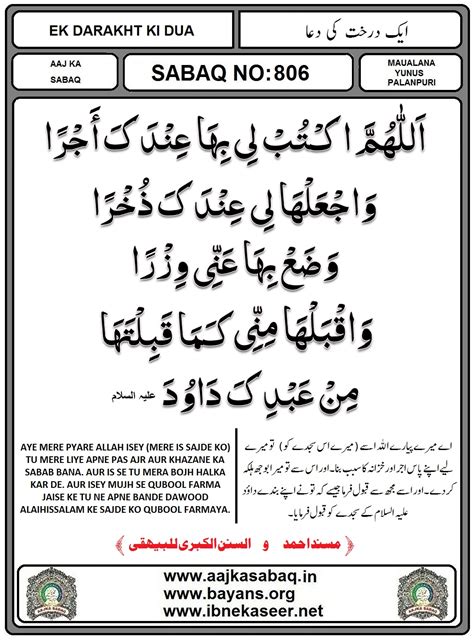 EK DARAKHT KI DUA
ایک درخت کی دعا
AAJ KA
SABAQ
SABAQ NO:806
MAUALANA
YUNUS
PALANPURI
اَللّٰهُمَّ اكْتُبْ لِي بِهَا عِنْدَكَ أَجْرًا
وَاجْعَلْهَا لِي عِنْدَكَ ذُخْرًا
وَضَعْ بِهَا عَنِّي وِزْرًا
وَاقْبَلْهَا مِنِّي كَمَا قَبِلْتَهَا
مِنْ عَبْدِكَ دَاوُدَ علیہ السلام
AYE MERE PYARE ALLAH ISEY (MERE IS SAJDE KO)
TU MERE LIYE APNE PAS AJR AUR KHAZANE KA
SABAB BANA. AUR IS SE TU MERA BOJH HALKA
KAR DE. AUR ISEY MUJH SE QUBOOL FARMA
JAISE KE TU NE APNE BANDE DAWOOD
ALAIHISSALAM KE SAJDE KO QUBOOL FARMAYA.
اے میرے پیارے اللہ اسے (میرے اس سجدے کو) تو میرے
لیے اپنے پاس اجر اور خزانہ کا سبب بنا۔ اور اس سے تو میرا بوجھ ہلکا
کر دے۔ اور اسے مجھ سے قبول فرما جیسے کہ تو نے اپنے بندے داؤد
علیہ السلام کے سجدے کو قبول فرمایا۔
﴿ مسند احمد و السنن الکبری للبیهقی ﴾
www.aajkasabaq.in
www.bayans.org
www.ibnekaseer.net
AAJKA SABAQ
AAJKA SABAQ